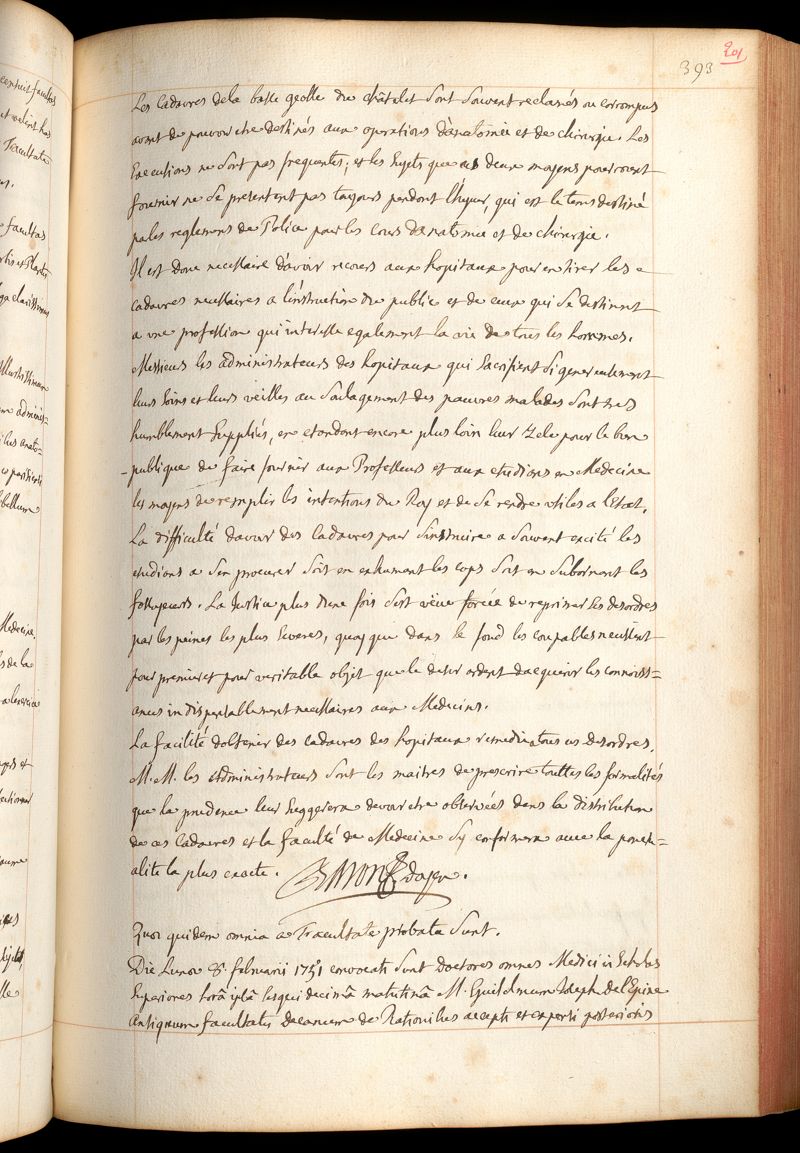 201
393
Les Cadavres de la basse geolle du châtelet sont souvent reclamés ou corrompus
avant de pouvoir etre destinés aux operations d'anatomie et de chirurgie. Les
Executions ne sont pas frequentes; et les sujets que ces deux moyens pourroient
fournir ne se presentent pas toujours pendant l'hyver, qui est le tems destiné
par les reglemens de Police pour les cours d'anatomie et de chirurgie.
Il est donc necessaire d'avoir recours aux hopitaux pour en tirer les
cadavres necessaires a l'instruction du public et de ceux qui se destinent
a une profession qui interesse egalement la vie de tous les hommes.
Messieurs les administrateurs des hopitaux qui sacrifient si genereusement
leurs soins et leurs veilles au soulagement des pauvres malades sont tres
humblement suppliés, en etendant encore plus loin leur zele pour le bien
publique de faire fournir aux Professeurs et aux etudians en Medecine
les moyens de remplir les intentions du Roy et de se rendre utiles a l'Etat.
La difficulté d'avoir des Cadavres pour s'instruire a souvent excité les
etudians a s'en procurer soit en exhumant les cops soit en subornant les
fossoyeurs. La Justice plus d'une fois s'est vëue forcée de reprimer ces desordres
par les peines les plus severes, quoyque dans le fond les coupables n'eussent
pour premier et pour veritable objet que le desir ardent d'acquerir les connoiss=
ances indispensablement necessaires aux Medecins.
La facilité d'obtenir des cadavres des hopitaux remedira tous ces desordres.
M.M. les Administrateurs sont les maitres de prescrire touttes les formalités
que la prudence leur suggerera devoir etre observées dans la distribution
de ces Cadavres et la faculté de Medecine s'y conformera avec la ponctu=
alité la plus exacte. doyen.
Quæ quidem omnia a Facultate probata sunt.
Die Lunæ 8ª februarii 1751 convocati sunt Doctores omnes Medici in Scholas
Superiores horâ ipsâ sesqui decimâ matutinâ M. Guilelmum Joseph de l'Epine
Antiquum facultatis decanum de Rationibus accepti et expensi posterioris